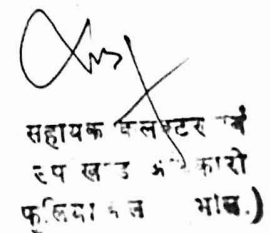 सहायक कलक्टर एवं
उप खण्ड अधिकारी
फूलिया कलां (भील.)